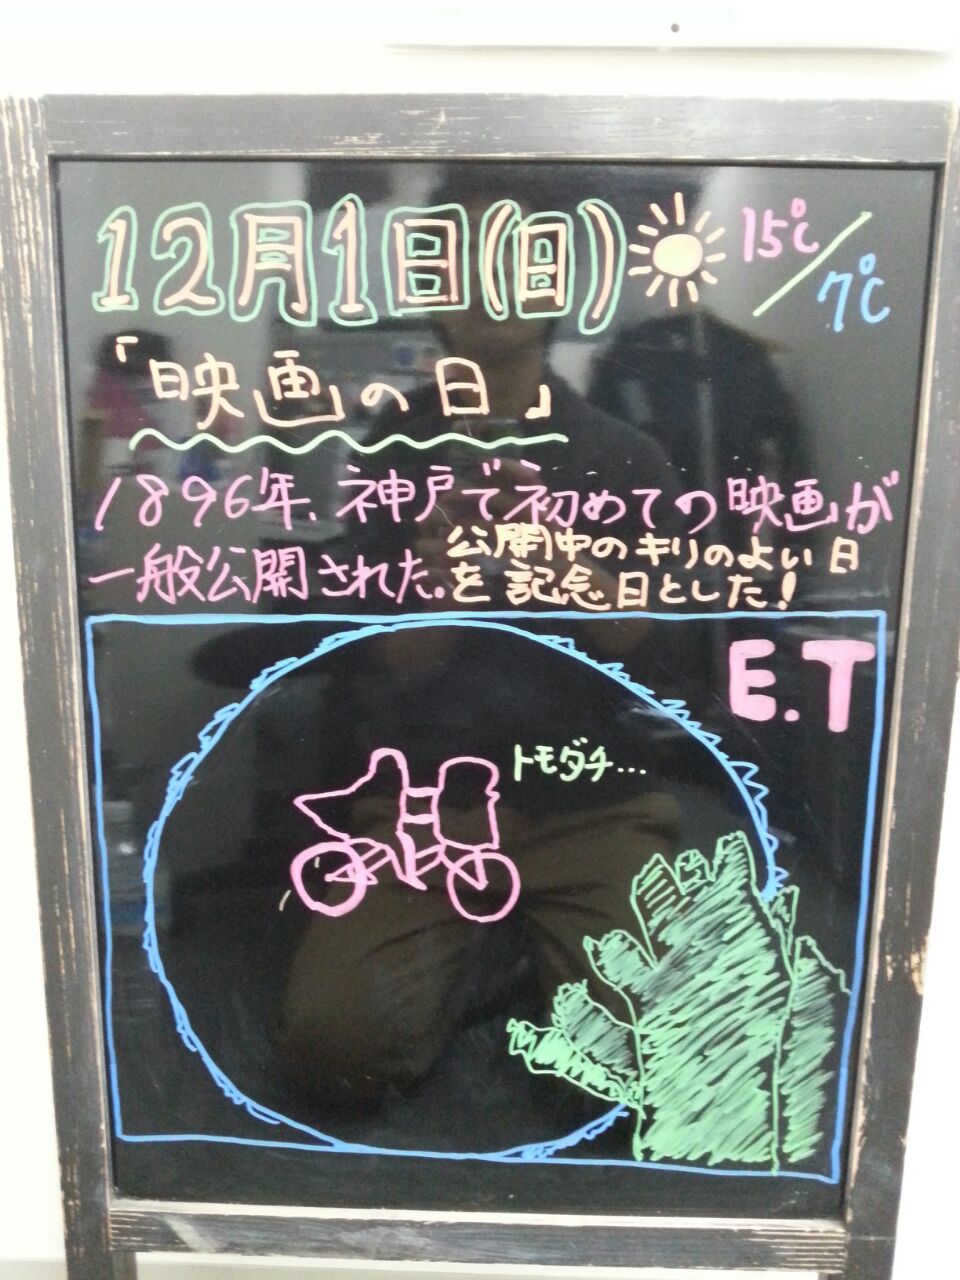 12月1日(日) 15℃/7℃
「映画の日」
1896年、神戸で初めての映画が
一般公開された。
公開中のキリのよい日
を記念日とした!
E.T
トモダチ...